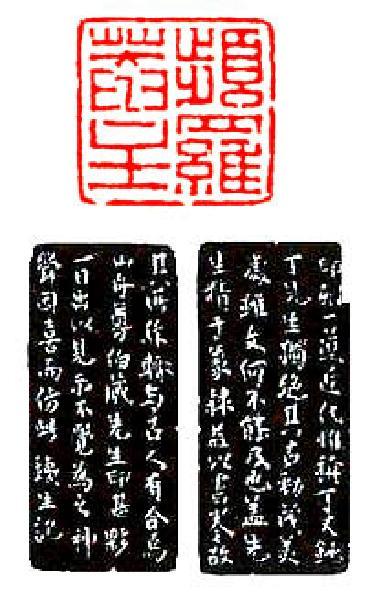 頻羅
菴主
一道近代惟稱丁丈鈍
丁先生獨絕其刀古勁茂美
處雖文何不能及也蓋先
生精于篆隸益以書卷故
其所作輒與古人有合焉
山舟尊伯藏先生印甚夥
一日出以見示不覺為之神
聳因喜而仿此 生記